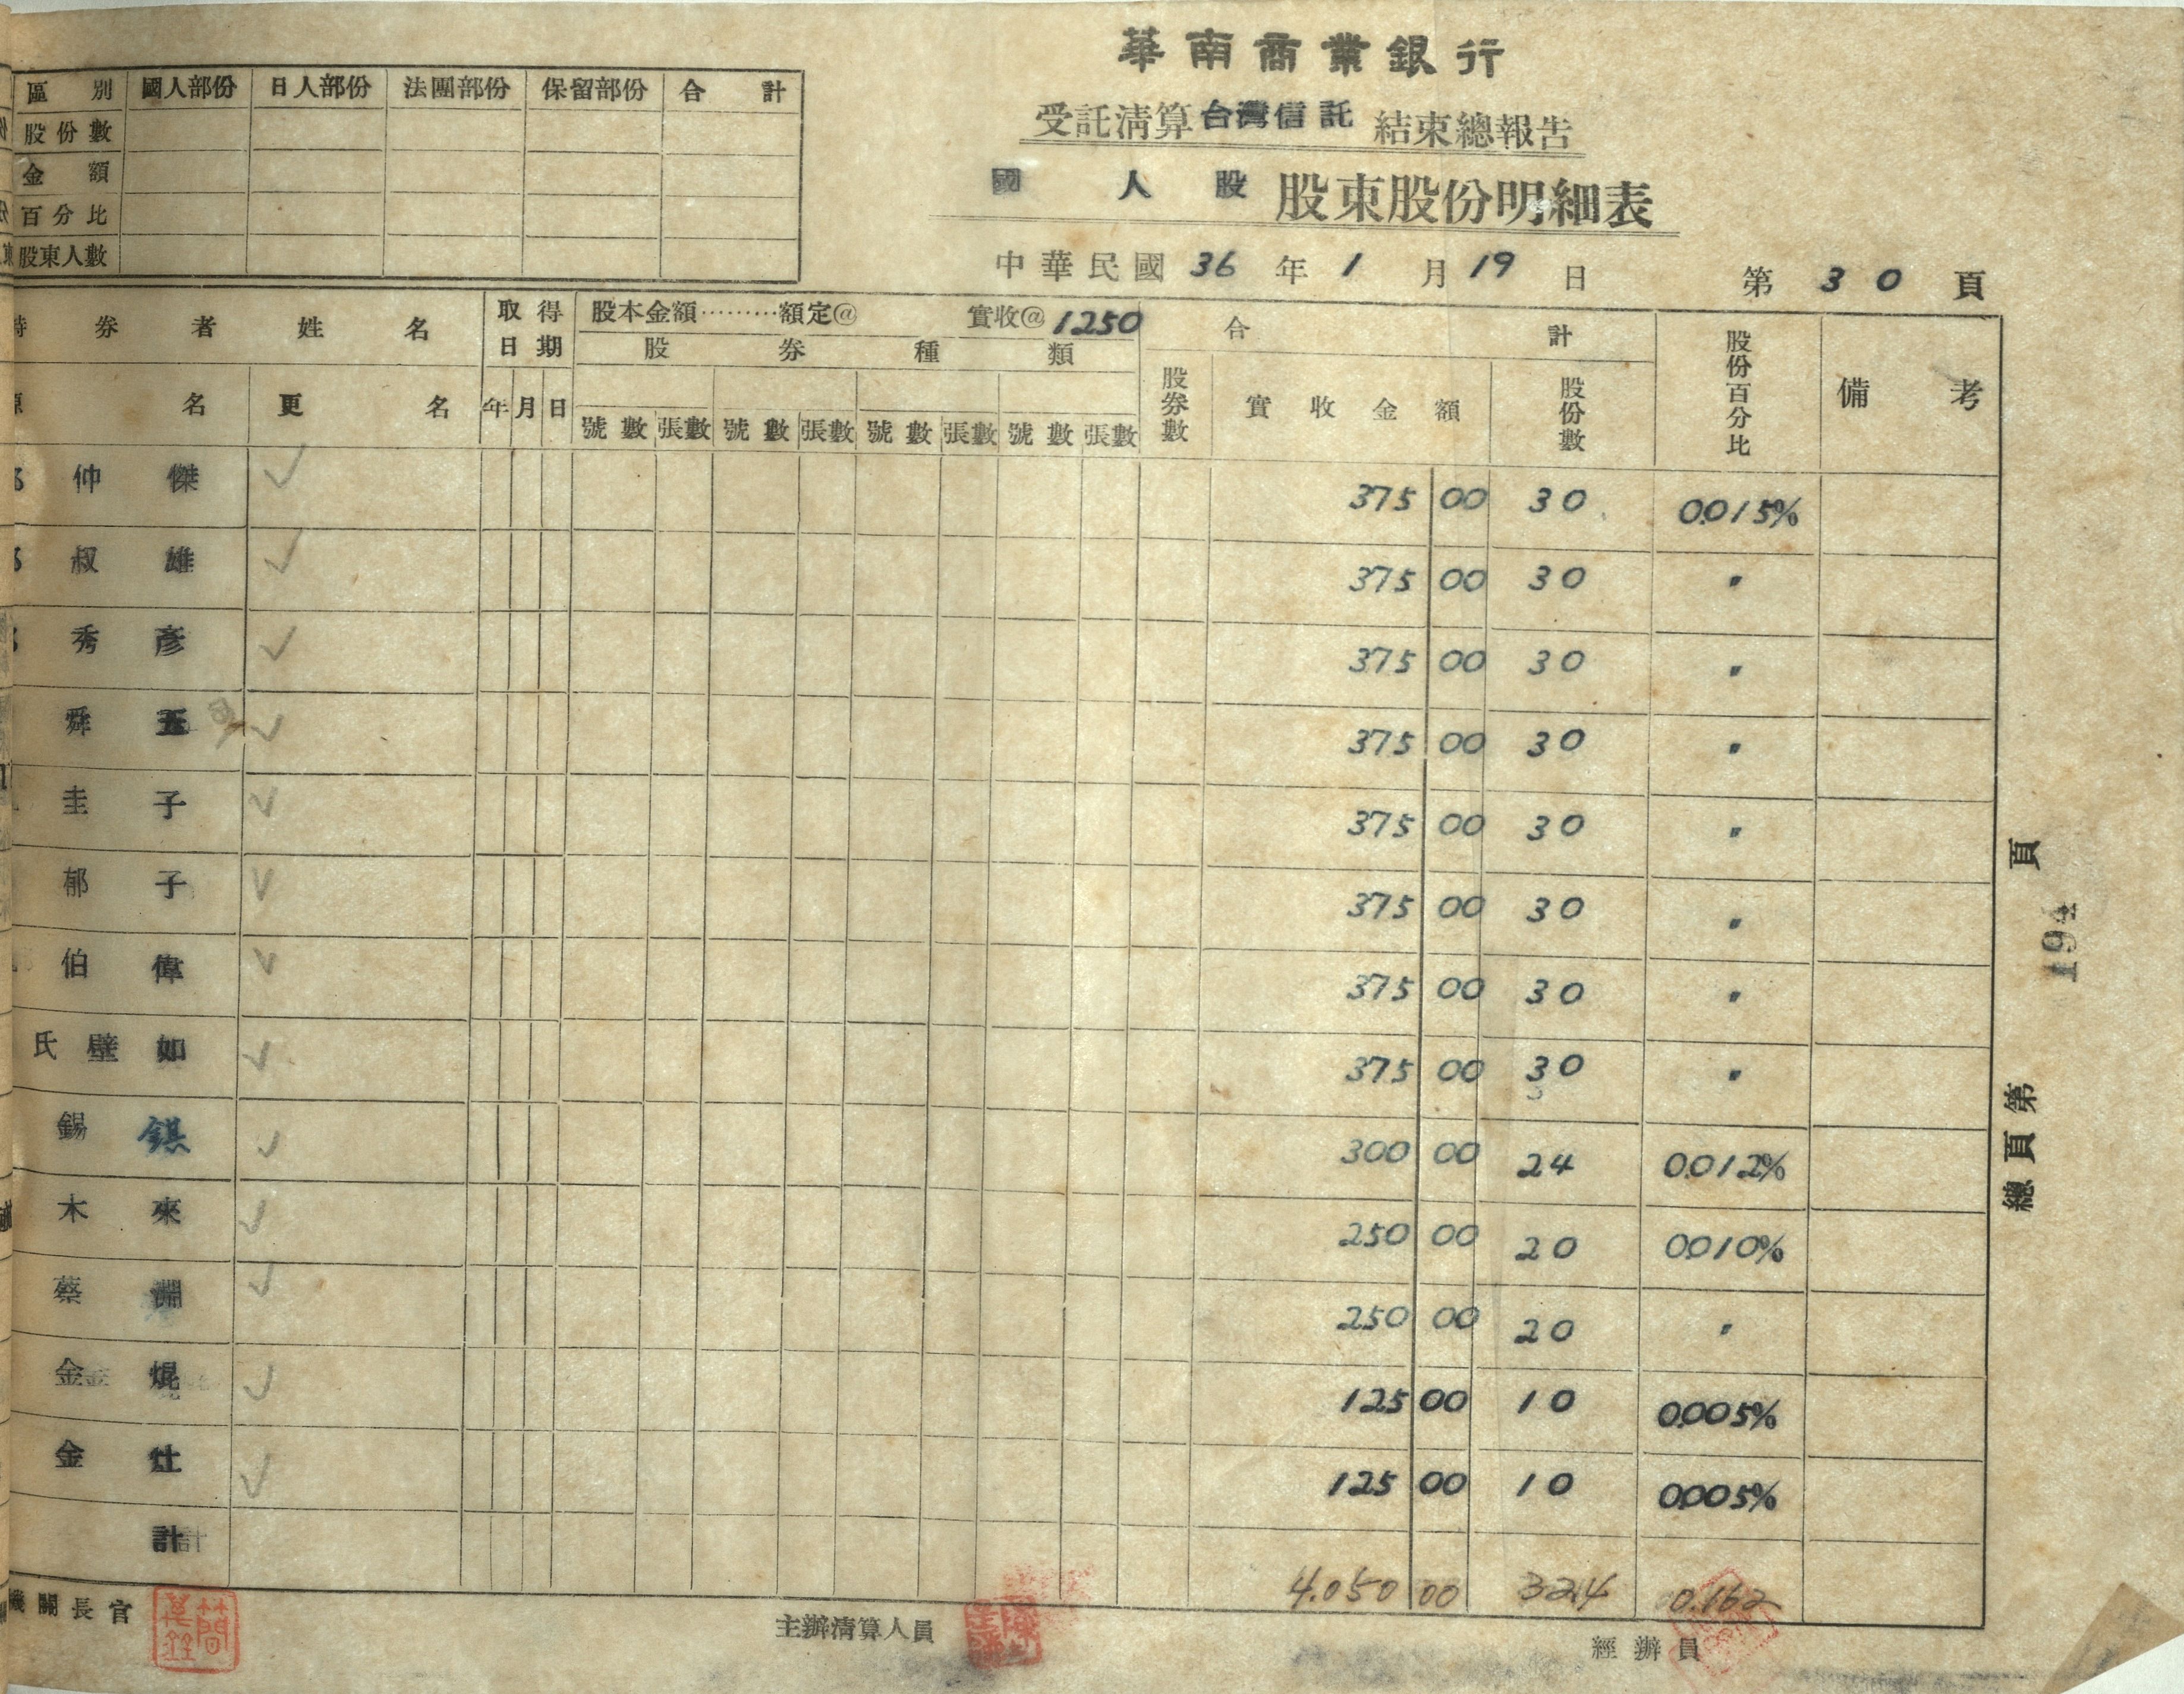 華南商業銀行
受託清算台灣信託結束總報告
國人股股東股份明細表
中華民國36年1月19日 第30頁
區別 國人部份 日人部份 法團部份 保留部份 合計
股份數
金額
百分比
股東人數
券者姓名 取得日期 股本金額………額定@ 實收@1250 合計 股份百分比 備考
股券種類
名 更名 年 月 日 號數 張數 號數 張數 號數 張數 號數 張數 股券數 實收金額 股份數
仲傑 375 00 30 0.015%
叔雄 375 00 30 〃
秀彥 375 00 30 〃
舜五 375 00 30 〃
圭子 375 00 30 〃
郁子 375 00 30 〃
伯偉 375 00 30 〃
氏壁如 375 00 30 〃
錫錤 300 00 24 0.012%
木來 250 00 20 0.010%
蔡淵 250 00 20 〃
金焜 125 00 10 0.005%
金灶 125 00 10 0.005%
計 4.050 00 324 0.162
關長官 主辦清算人員 經辦員
總頁第 頁
194